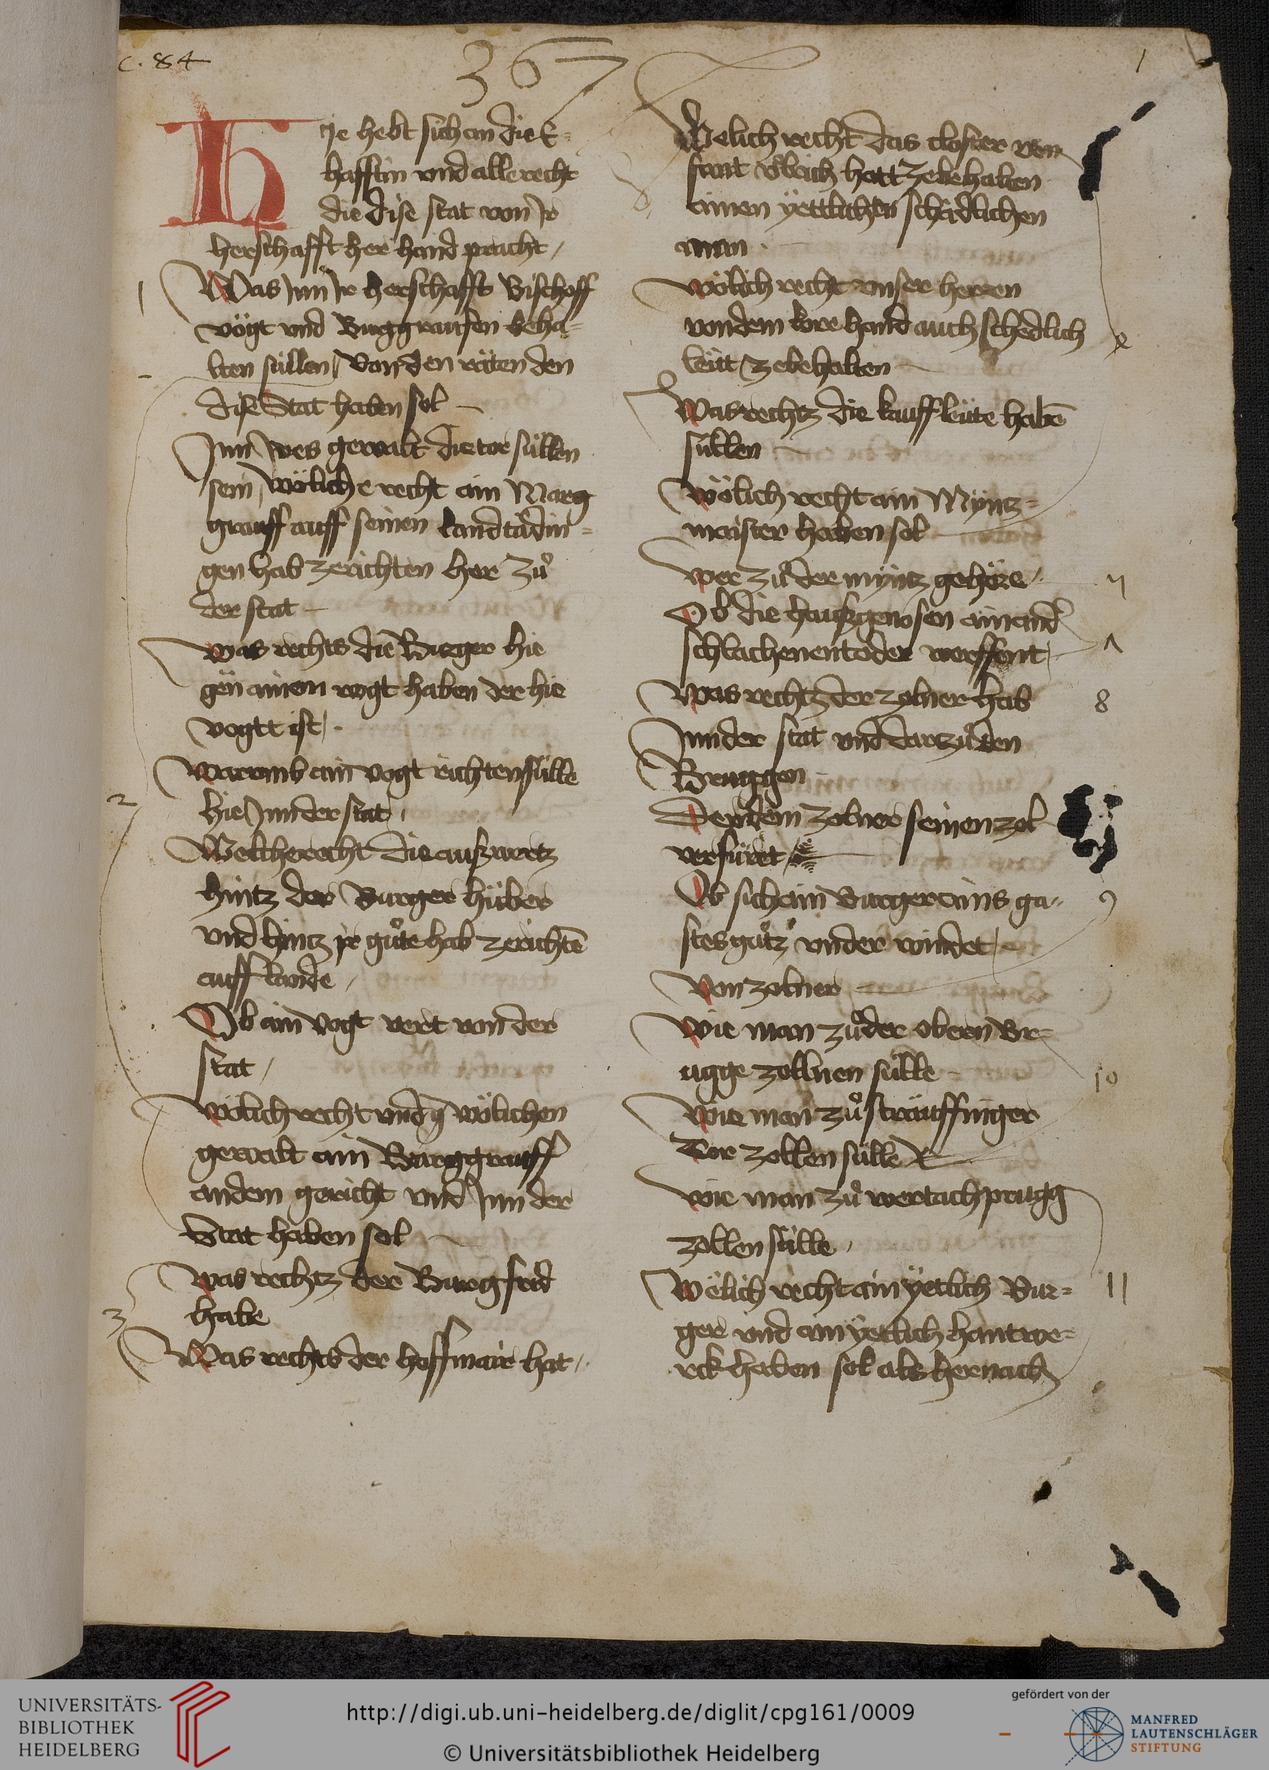 C. 84
367
1
Hie hebt sich an die E-
hafftin vnd alle recht
die dise stat von Jr
herschafft her hand pracht /
Was Jnn Jr herschafft Bischoff
vögt vnd Burggraufen beha-
lten süllen / Von den räten den
dise Stat haben sol
Jnn wes gewalt die tor süllen
sein / wöliche recht ain Marg
grauff auff seinen landtädin-
gen hab zerichten her zů
der stat
was rechts die Burger hie
gen ainen vogt haben der hie
vogtt ist /
warumb ain vogt richten sülle
hie Jnn der stat
Welche recht die außwertz
hintz der Burger hüber
vnd hintz jr gůte hab zerichtē
auff lande /
Ob ain vogt vert von der
stat /
wölich recht vnd wölichen
gewalt ain Burggrauff
an dem gericht vnd Jnn der
Stat haben sol
was rechtz der Burggraf
habe
Was rechts der hoffmair hat
Welich recht das closter von
sant Vlrich hatt ze behalten
ainen yettlichen schedlichen
man
wölich recht vnser herren
von dem kore hand auch schedlich
leütt ze behalten
Was rechtz die kauffleüte habē
süllen
Wölich recht ain Müntz-
maister haben sol
wer zů der müntz gehöre
Ob die haußgenosen ainand
schlachenent oder werffent
Was rechtz der zolner hab
Jnn der stat vnd dar zů den
Bruggen
Der dem zolner seinen zol
verfüret
Ob sich ain Burger ains ga-
stes gůtz vnder windet
Von zolner
Wie man zů der obern Br-
ugge zollnen sülle
Wie man zů sträuffinger
Tor zollen sülle
wie man zů wertachprugg
zollen sülle
Wölich recht ain yetlich Bur-
ger vnd ain yetlich hantwe-
rck haben sol als hernach
1
2
3
7
8
9
10
11
UNIVERSITÄTS-
BIBLIOTHEK
HEIDELBERG
http://digi.ub.uni-heidelberg.de/diglit/cpg161/0009
© Universitätsbibliothek Heidelberg
gefördert von der
MANFRED
LAUTENSCHLÄGER
STIFTUNG